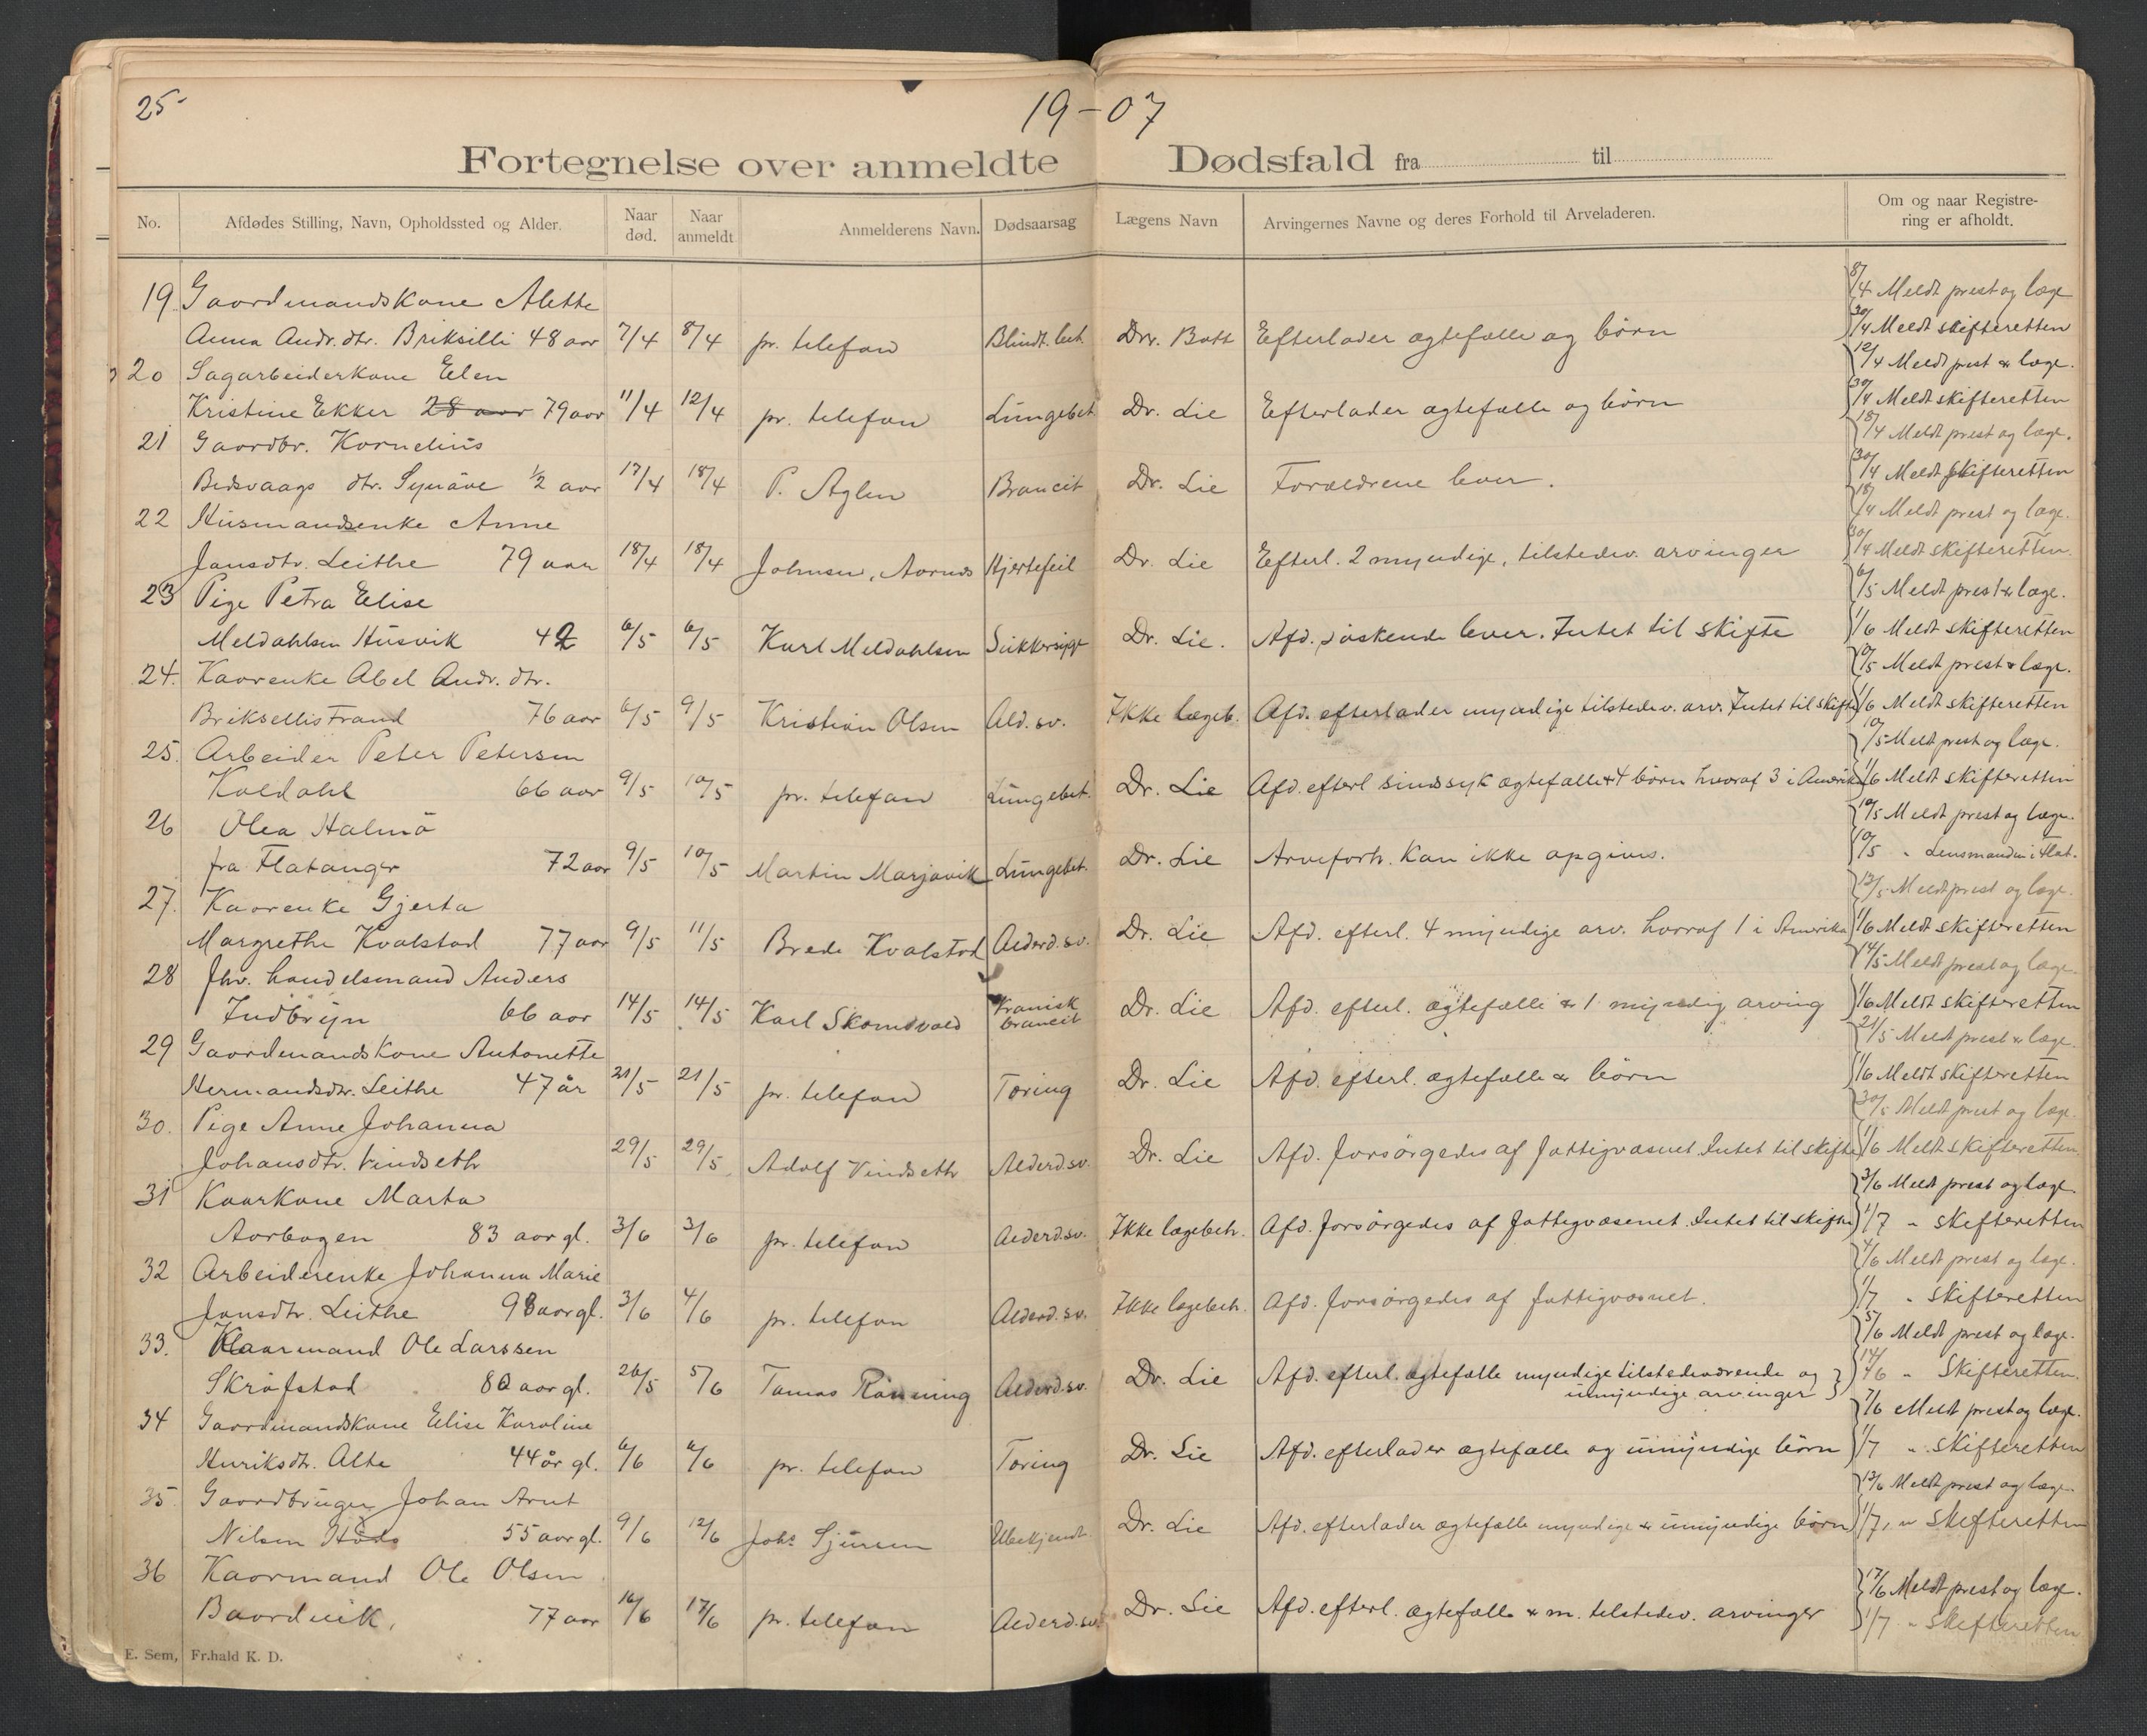 25
19-07
Fortegnelse over anmeldte Dødsfald fra til
No. Afdødes Stilling, Navn, Opholdssted og Alder. Naar død. Naar anmeldt Anmelderens Navn. Dødsaarsag Lægens Navn Arvingernes Navne og deres Forhold til Arveladeren. Om og naar Registrering er afholdt.
19 Gaardmandskone Alette 8/4 Meldt prest og læge
Anna Andr. dtr. Briksilli 48 aar 7/4 8/4 pr. telefon Blindt. bet. Dr. Bott Efterlader ægtefælle og børn 30/4 Meldt skifteretten
20 Sagarbeiderkone Elen 12/4 Meldt prest & læge.
Kristine Ekker 28 aar 79 aar 11/4 12/4 pr. telefon Lungebet Dr. Lie Efterlader ægtefælle og børn 30/4 Meldt skifteretten
21 Gaardbr. Kornelius 18/4 Meldt prest og læge.
Bedsvaags dtr. Synøve ½ aar 17/4 18/4 P. Aglen Broncit Dr. Lie Forældrene lever. 30/4 Meldt skifteretten
22 Husmandsenke Anne 18/4 Meldt prest og læge.
Jansdtr. Leithe 79 aar 18/4 18/4 Johnsen, Aarnes Hjertefeil Dr. Lie Efterl. 2 myndige, tilstedev. arvinger 30/4 Meldt skifteretten.
23 Pige Petra Elise 6/5 Meldt prest & læge.
Meldahlsen Husvik 42 6/5 6/5 Karl Meldahlsen Sukkersyge Dr. Lie. Afd. søskende lever. Intet til skifte 1/6 Meldt skifteretten
24. Kaarenke Abel Andr. dtr. 9/5 Meldt prest & læge.
Briksellistrand 76 aar 6/5 9/5 Kristian Olsen Ald. sv. Ikke lægeb. Afd. efterlader myndige tilstedev. arv. Intet til skifte 1/6 Meldt skifteretten
25. Arbeider Peter Petersen 10/5 Meldt prest og læge.
Koldahl 66 aar 9/5 10/5 pr. telefon Lungebet. Dr. Lie Afd. efterl sindssyk ægtefælle & 4 børn hvoraf 3 i Amerika 1/6 Meldt skifteretten
26 Olea Halmø 10/5 Meldt prest og læge.
fra Flatanger 72 aar 9/5 10/5 Martin Marjavik Lungebet. Dr. Lie Arveforh. kan ikke opgives. 10/5 " Lensmanden i Flat.
27. Kaarenke Gjerta 13/5 Meldt prest og læge.
Margrethe Kvalstad 77 aar 9/5 11/5 Brede Kvalstad Alderd. sv. Dr. Lie Afd. efterl. 4 myndige arv. hvoraf 1 i Amerika 1/6 Meldt skifteretten
28 Fhv. handelsmand Anders 14/5 Meldt prest og læge
Indbryn 66 aar 14/5 14/5 Karl Skomsvold Kronisk broncit Dr. Lie Afd. efterl. ægtefælle & 1 myndig arving 1/6 Meldt skifteretten
29 Gaardmandskone Antonette 21/5 Meldt prest & læge.
Hermandsdtr. Leithe 47 år 21/5 21/5 pr. telefon Tæring Dr. Lie Afd. efterl. ægtefælle & børn 1/6 Meldt skifteretten
30. Pige Anne Johanna 30/5 Meldt prest og læge.
Johansdtr. Vindseth 29/5 29/5 Adolf Vindseth Alderd. sv. Dr. Lie Afd. forsørgedes af fattigvæsnet. Intet til skifte 1/6 Meldt skifteretten.
31 Kaarkone Marta 3/6 Meldt prest og læge.
Aarbogen 83 aar gl. 3/6 3/6 pr. telefon Alderd. sv. Ikke lægebeh. Afd. forsørgedes af fattigvæsenet. Intet til skifte 1/7 " skifteretten
32 Arbeiderenke Johanna Marie 4/6 Meldt prest og læge.
Jansdtr. Leithe 98 aar gl. 3/6 4/6 pr. telefon Alderd. sv. Ikke lægebeh. Afd. forsørgedes af fattigvæsnet. 1/7 " skifteretten
33. Kaarmand Ole Larssen 5/6 Meldt prest og læge.
Skrøfstad 80 aar gl. 26/5 5/6 Tomas Rønning Alderd. sv. Dr. Lie Afd. efterl. ægtefælle myndige tilstedeværende og umyndige arvinger 14/6 " Skifteretten.
34 Gaardmandskone Elise Karoline 7/6 Meldt prest og læge.
Henriksdtr. Alte 44 år gl. 6/6 6/6 pr. telefon Tæring Dr. Lie Afd. efterlader ægtefælle og umyndige børn 1/7 " Skifteretten
35 Gaardbruger Johan Arnt 13/6 Meldt prest og læge.
Nilsen Høds 55 aar gl. 9/6 12/6 Johs Sjursen Ubekjendt Dr. Lie Afd. efterlader ægtefælle myndige & umyndige børn 1/7 " Skifteretten
36 Kaarmand Ole Olsen 17/6 Meldt prest og læge.
Baardvik, 77 aar 16/6 17/6 pr. telefon Alderd. sv. Dr. Lie Afd. efterl. ægtefælle & m. tilstedev. arvinger 1/7 " Skifteretten
E. Sem, Fr.hald K. D.